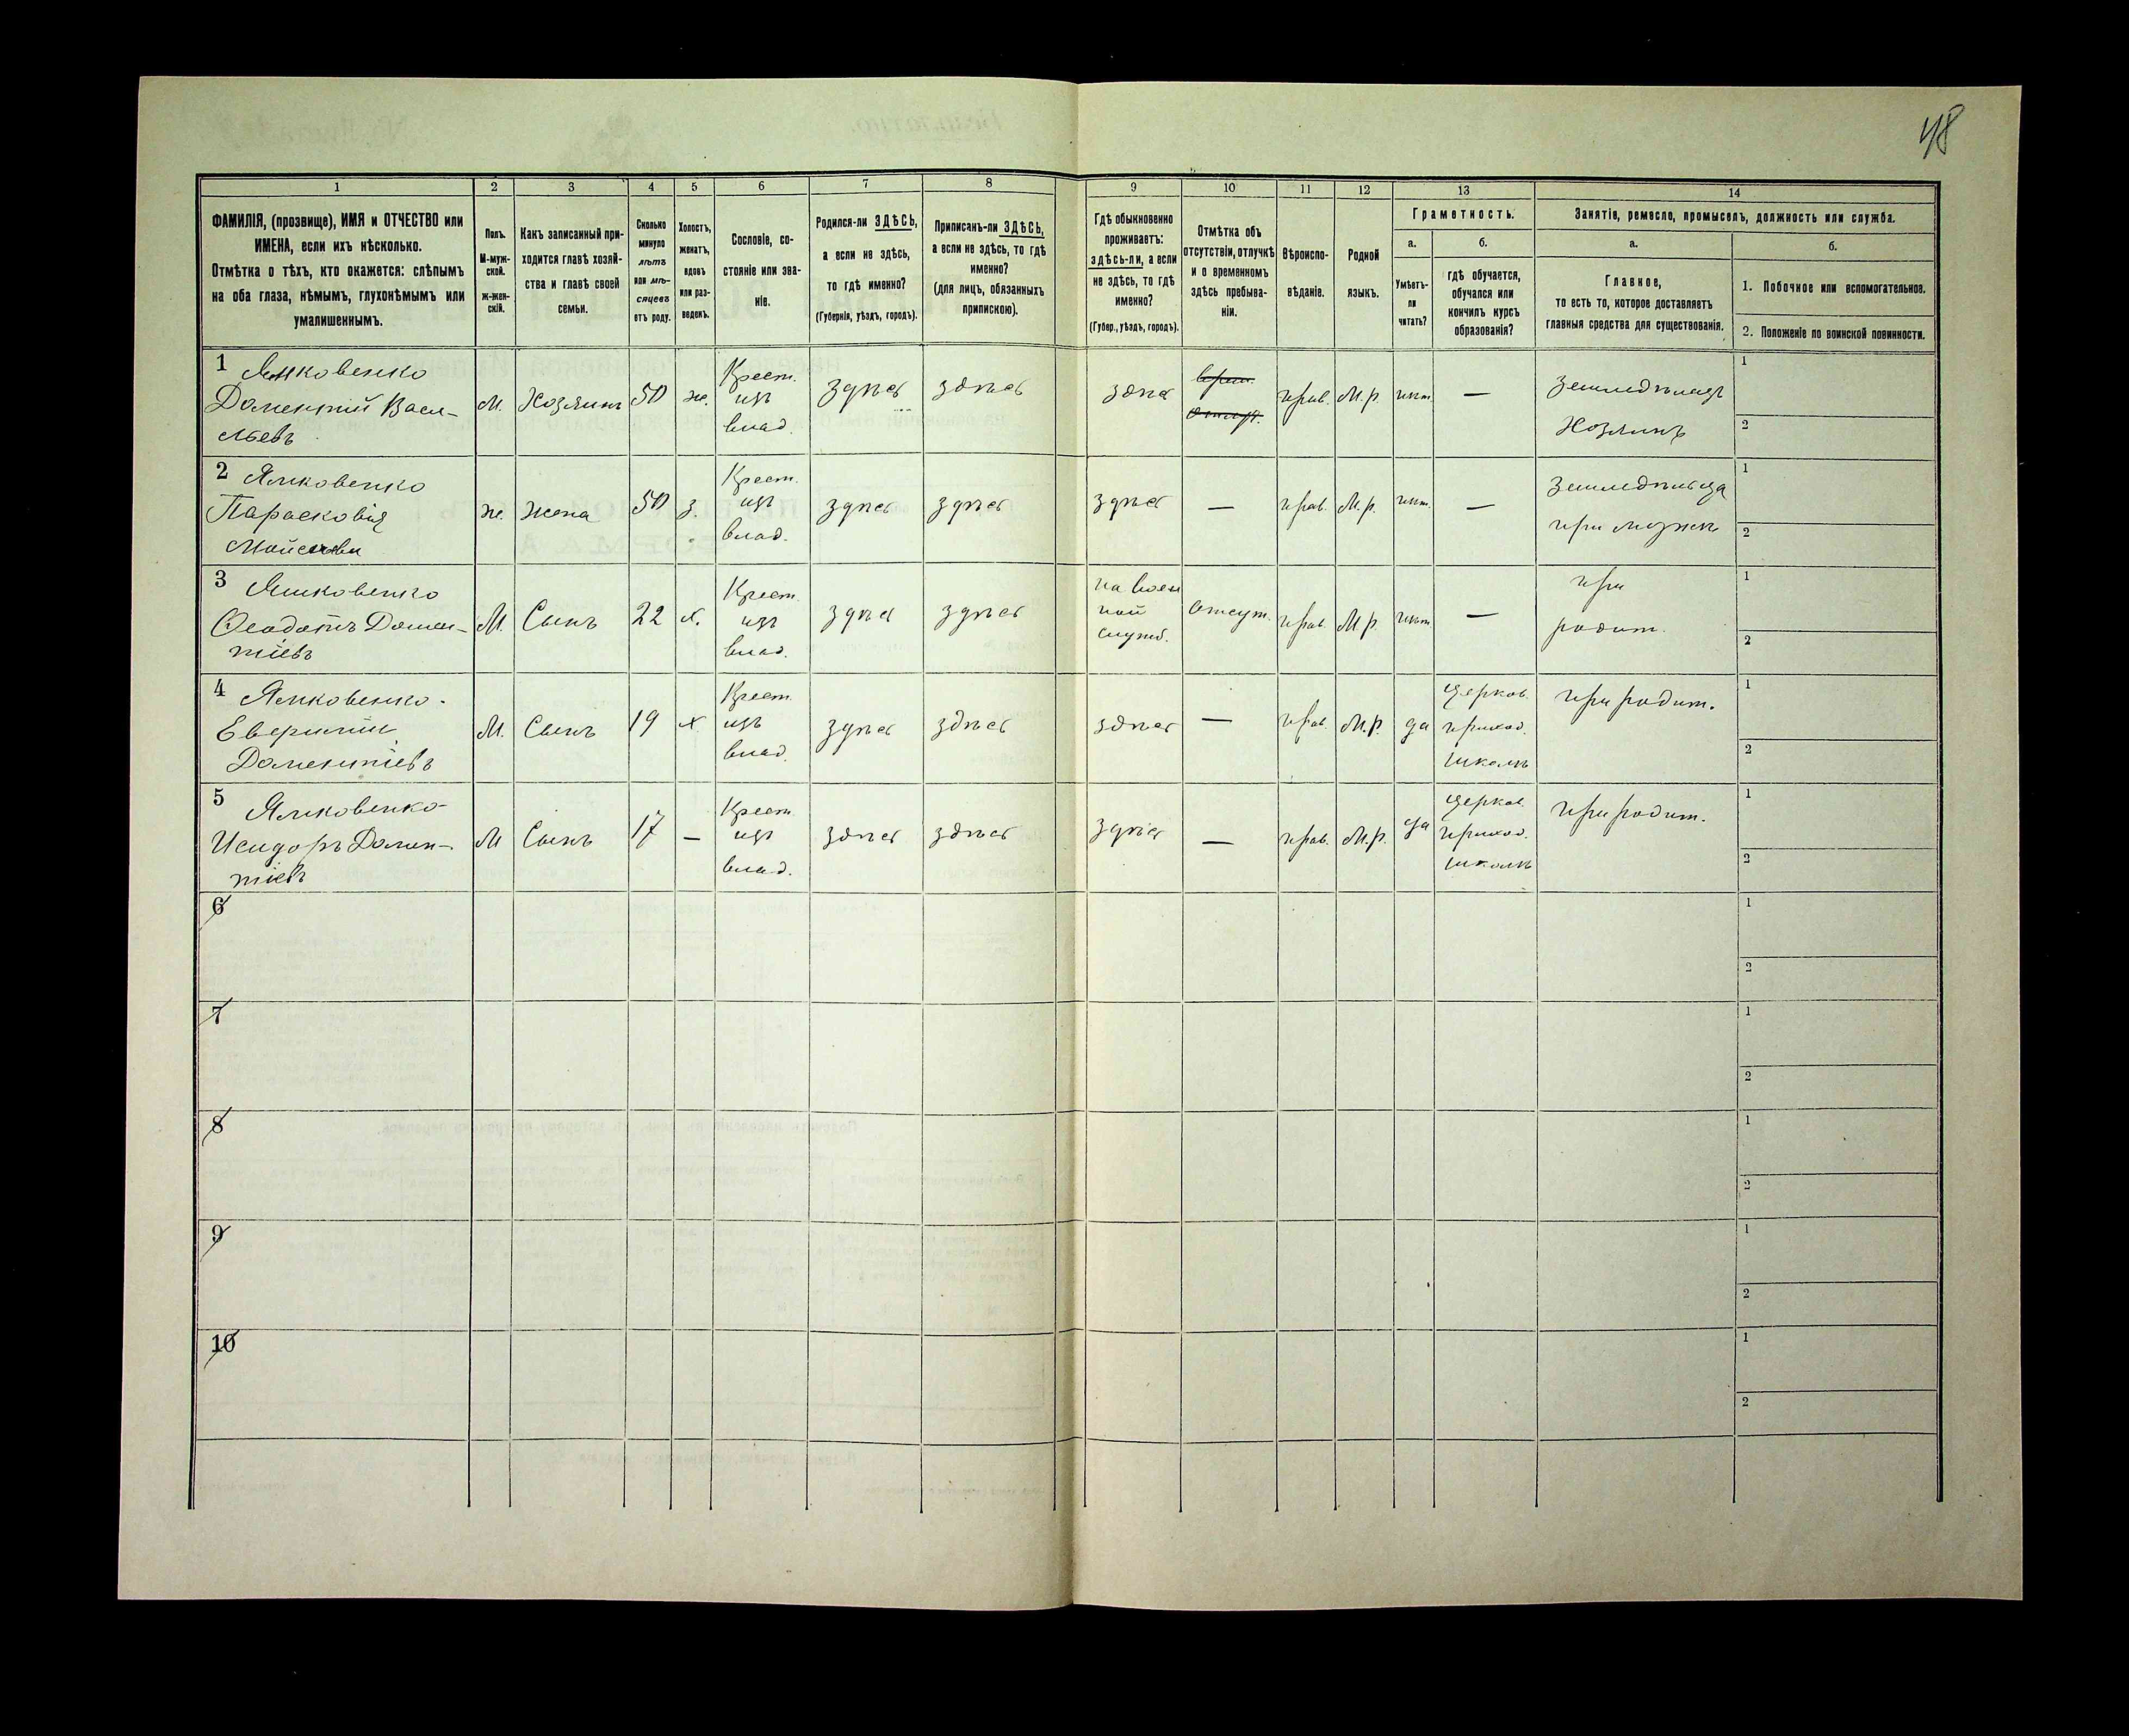 48
1
2
3
4
5
6
7
8
9
10
11
12
13
14
ФАМИЛІЯ, (прозвище), ИМЯ и ОТЧЕСТВО или
ИМЕНА, если ихъ нѣсколько.
Отмѣтка о тѣхъ, кто окажется: слѣпымъ
на оба глаза, нѣмымъ, глухонѣмымъ или
умалишеннымъ.
Полъ.
М-муж-
ской.
ж-жен-
скій.
Какъ записанный при-
ходится главѣ хозяй-
ства и главѣ своей
семьи.
Сколько
минуло
лѣтъ
или мѣ-
сяцевъ
отъ роду.
Холостъ,
женатъ,
вдовъ
или раз-
веденъ.
Сословіе, со-
стояніе или зва-
ніе.
Родился-ли ЗДѢСЬ,
а если не здѣсь,
то гдѣ именно?
(Губернія, уѣздъ, городъ).
Приписанъ-ли ЗДѢСЬ,
а если не здѣсь, то гдѣ
именно?
(для лицъ, обязанныхъ
припискою).
Гдѣ обыкновенно
проживаетъ:
здѣсь-ли, а если
не здѣсь, то гдѣ
именно?
(Губер., уѣздъ, городъ).
Отмѣтка объ
отсутствіи, отлучкѣ
и о временномъ
здѣсь пребыва-
ніи.
Вѣроиспо-
вѣданіе.
Родной
языкъ.
Грамотность.
а.
Умѣетъ-
ли
читать?
б.
гдѣ обучается,
обучался или
кончилъ курсъ
образованія?
Занятіе, ремесло, промыселъ, должность или служба.
а.
Главное,
то есть то, которое доставляетъ
главныя средства для существованія.
б.
1. Побочное или вспомогательное.
2. Положеніе по воинской повинности.
1 Ямковенко
Доментій Васи-
льевъ
М.
Хозяинъ
50
ж.
Крест.
изъ
влад.
здѣсь
здѣсь
здѣсь
прав.
М.р.
нѣт.
—
Земледѣлецъ
Хозяинъ
1
2
2 Ямковенко
Парасковія
ж.
жена
50
з.
Крест.
изъ
влад.
здѣсь
здѣсь
здѣсь
—
прав.
М.р.
нѣт.
—
Земледѣлица
при мужѣ
1
2
3 Ямковенко
Ѳеодотъ Домен-
тіевъ
М.
Сынъ
22
х.
Крест.
изъ
влад.
здѣсь
здѣсь
на воен
ной
служб.
отсут.
прав.
М.р.
нѣт.
—
при
родит.
1
2
4 Ямковенко.
Доментіевъ
М.
Сынъ
19
х
Крест.
изъ
влад.
здѣсь
здѣсь
здѣсь
—
прав.
М.р.
да
церков.
приход.
школѣ
при родит.
1
2
5 Ямковенко
Исидоръ Домен-
тіевъ
М
Сынъ
17
—
Крест.
изъ
влад.
здѣсь
здѣсь
здѣсь
—
прав.
М.р.
да
церков.
приход.
школѣ
при родит.
1
2
6
1
2
7
1
2
8
1
2
9
1
2
10
1
2